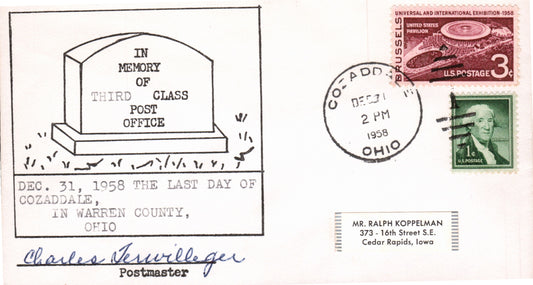 IN
MEMORY
OF
THIRD CLASS
POST
OFFICE
DEC. 31, 1958 THE LAST DAY OF
COZADDALE,
IN WARREN COUNTY,
OHIO
Charles Terwilleger
Postmaster
COZADDALE
DEC 31
2 PM
1958
OHIO
BRUSSELS
UNIVERSAL AND INTERNATIONAL EXHIBITION·1958
UNITED STATES
PAVILION
U.S. POSTAGE 3¢
1¢
U.S. POSTAGE
MR. RALPH KOPPELMAN
373 - 16th Street S.E.
Cedar Rapids, Iowa